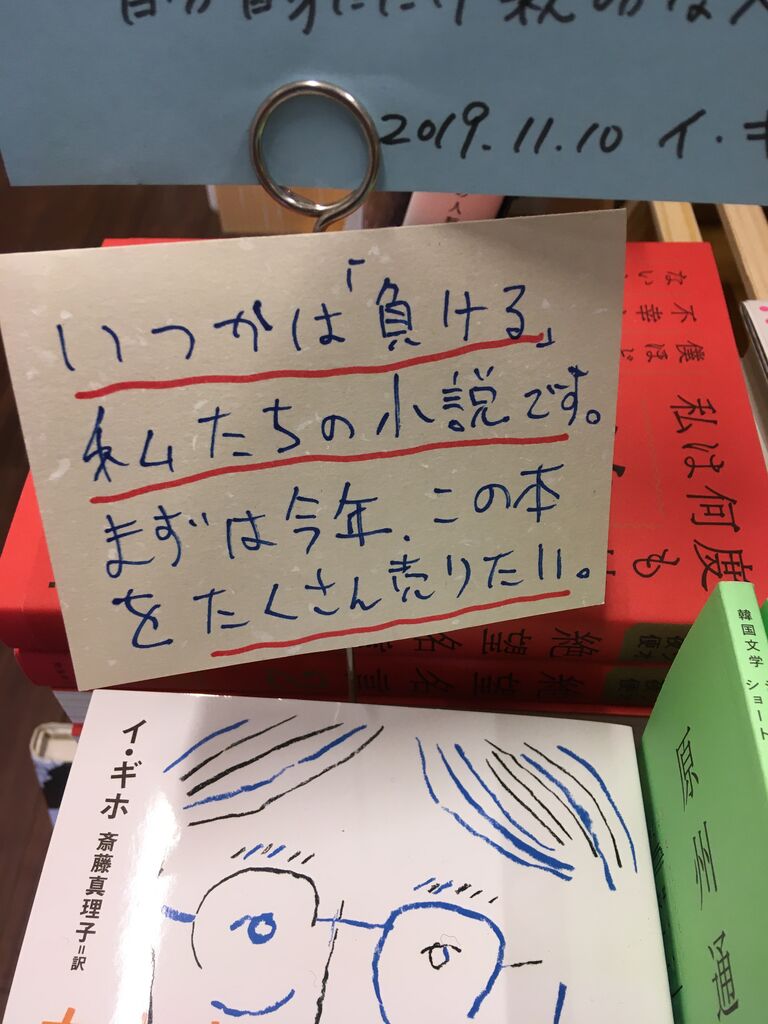 2019.11.10 イ・
いつかは「負ける」
私たちの小説です。
まずは今年、この本
をたくさん売りたい。
不幸
僕ほど
私は何度も
絶望名言
絶望名言
イ・ギホ
斎藤真理子=訳
韓国文学ショート
原州通